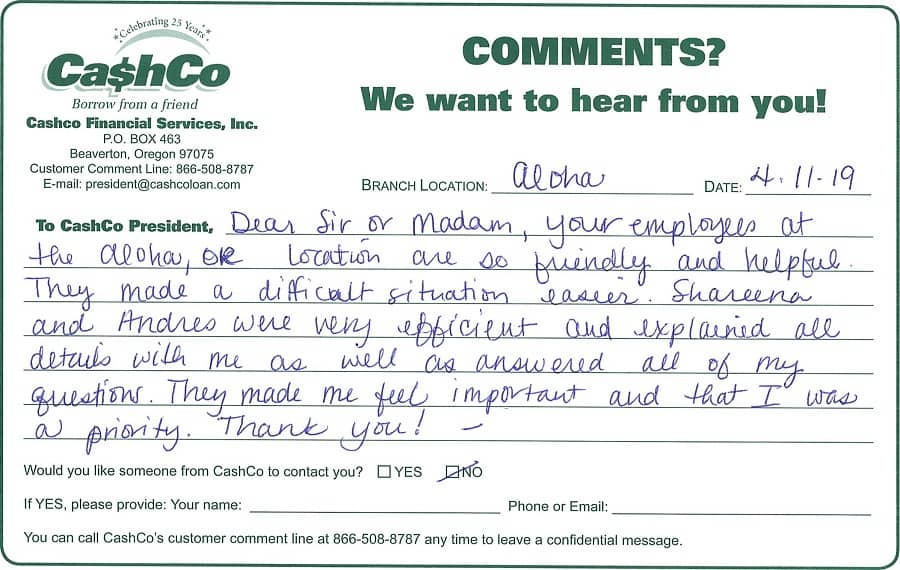 Celebrating 25 Years
Ca$hCo
Borrow from a friend
Cashco Financial Services, Inc.
P.O. BOX 463
Beaverton, Oregon 97075
Customer Comment Line: 866-508-8787
E-mail: president@cashcoloan.com
COMMENTS?
We want to hear from you!
BRANCH LOCATION: Aloha DATE: 4.11-19
To CashCo President, Dear Sir or Madam, your employees at
the Aloha, OR location are so friendly and helpful.
They made a difficult situation easier. Shareena
and Andres were very efficient and explained all
details with me as well as answered all of my
questions. They made me feel important and that I was
a priority. Thank you! –
Would you like someone from CashCo to contact you? YES NO
If YES, please provide: Your name: Phone or Email:
You can call CashCo's customer comment line at 866-508-8787 any time to leave a confidential message.